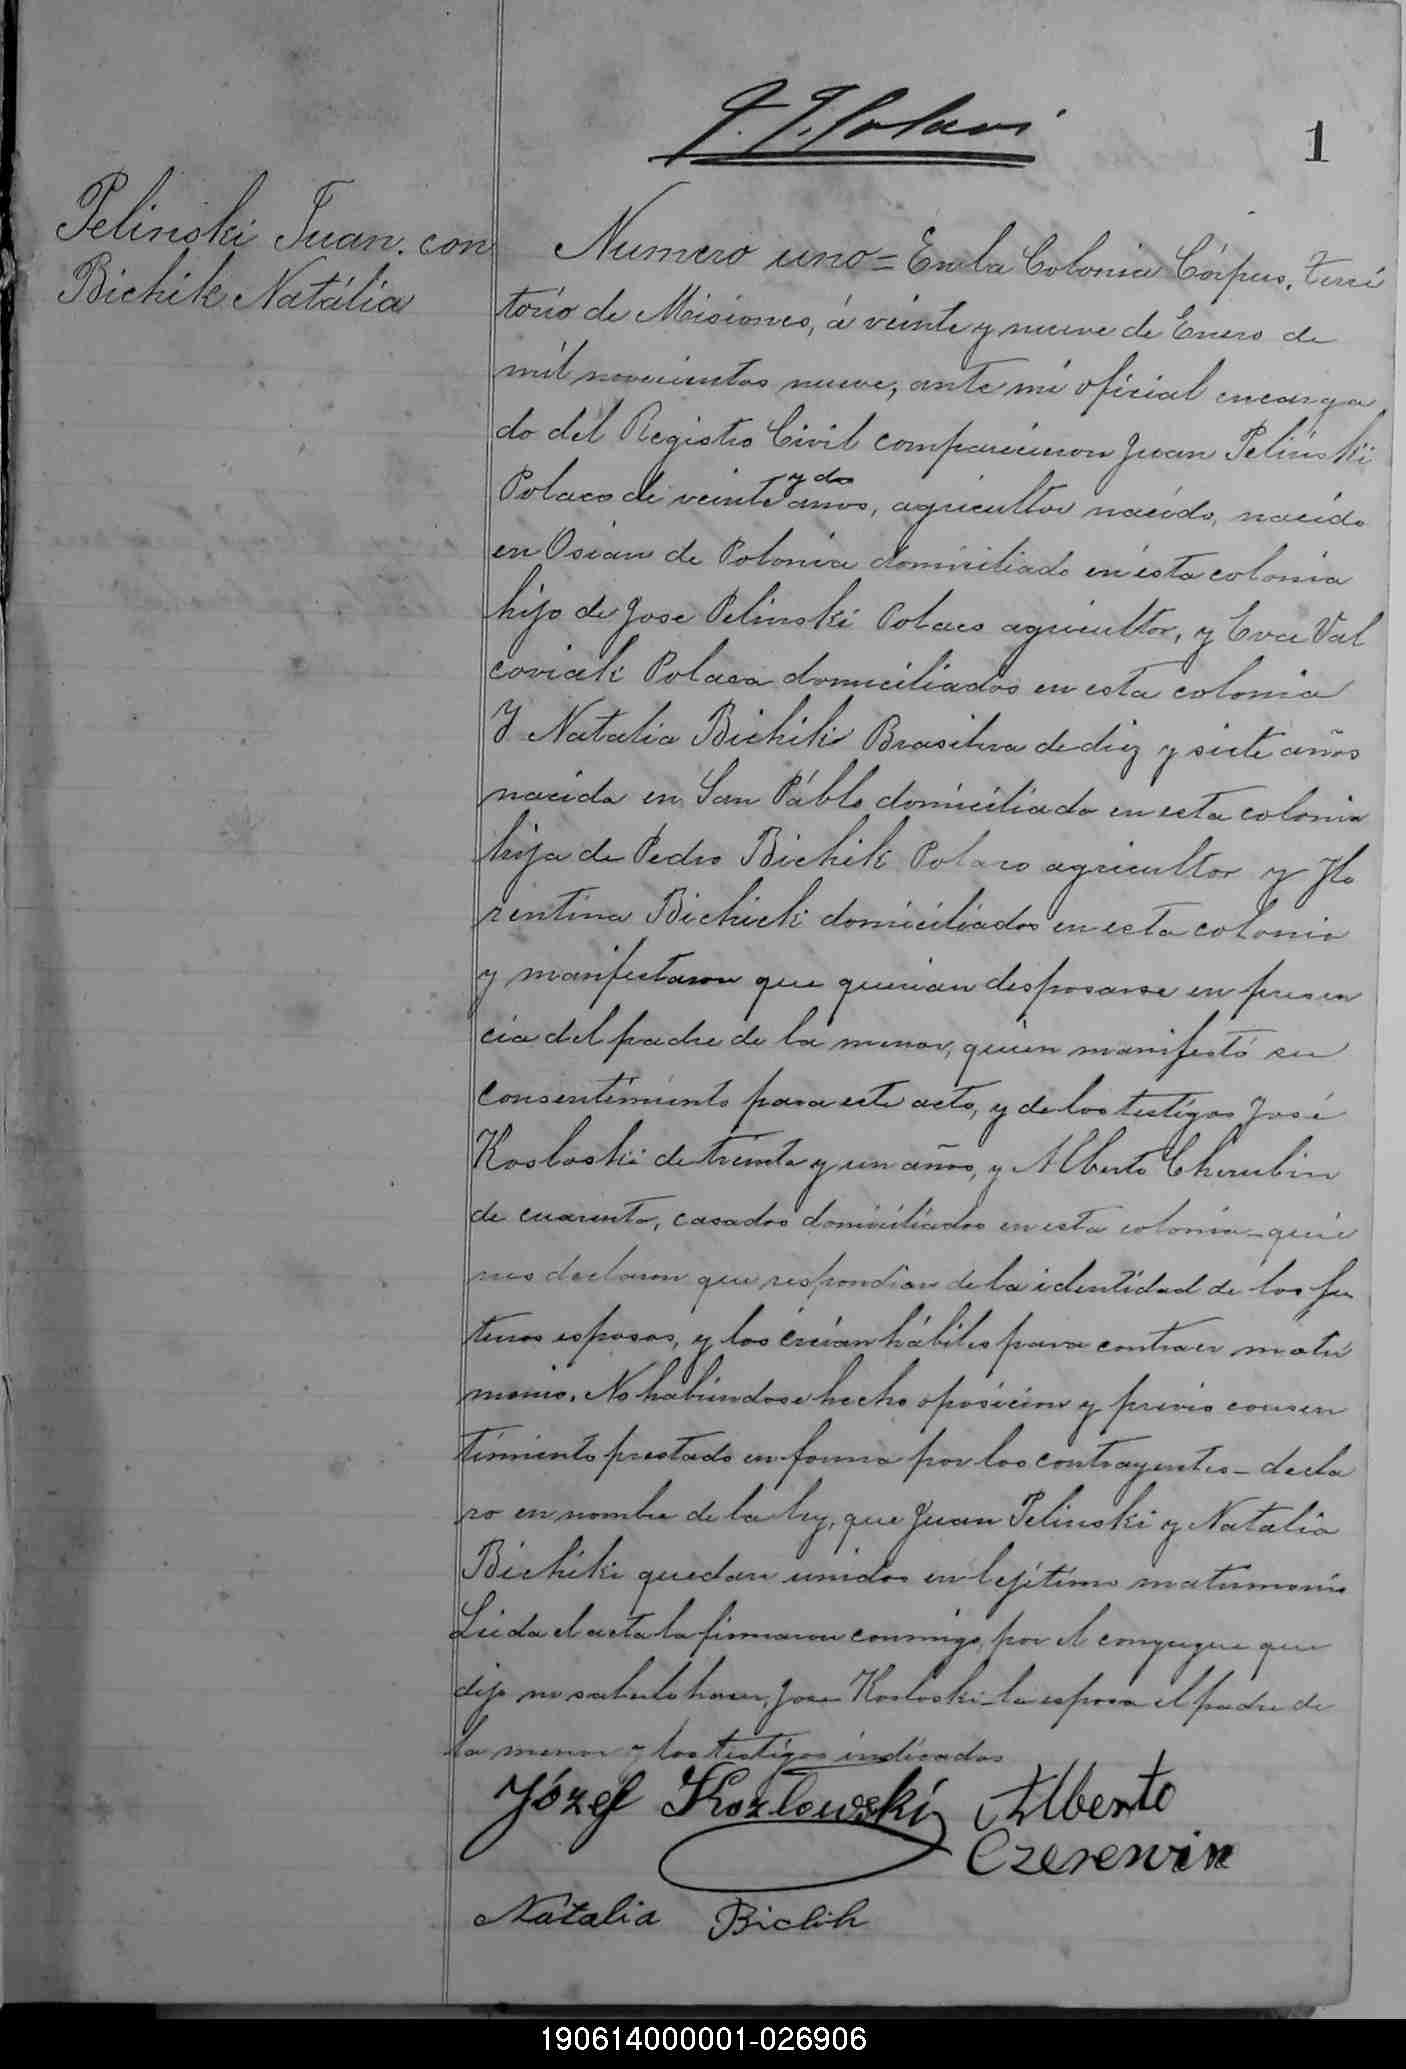 1
Pelinski Juan. con
Bichik Natália
Numero uno = En la Colonia Córpus, terri
torio de Misiones, á veinte y nueve de Enero de
mil novecientos nueve, ante mi oficial encarga
do del Registro Civil comparecieron Juan Pelinski
y dos
Polaco de veinte años, agricultor nacido, nacido
en Osian de Polonia domiciliado en ésta colonia
hijo de Jose Pelinski Polaco agricultor, y Eva Val
coviak Polaca domiciliados en esta colonia
Y Natalia Bichik Brasilera de diez y siete años
nacida en San Páblo domiciliada en esta colonia
hija de Pedro Bichik Polaco agricultor y Flo
rentina Bichick domiciliados en esta colonia
y manifestaron que querian desposarse en presen
cia del padre de la menor, quien manifestó su
consentimiento para este acto, y de los testigos José
Kosloski de treinta y un años, y Alberto Cherubin
de cuarenta, casados domiciliados en esta colonia - quie
nes declaron que respondian de la identidad de los fu
turos esposos, y los creian hábiles para contraer matri
monio. No habiendose hecho oposicion y previo consen
timiento prestado en forma por los contrayentes - decla
ro en nombre de la ley, que Juan Pelinski y Natalia
Bichiki quedan unidos en lejítimo matrimonio
Leida el acta la firmaron conmigo, por el conyugue que
dijo no saberlo hacer, Jose Kosloski - la esposa el padre de
la menor y los testigos indicados
Józef Kozlowski Alberto
Czerenvin
Natalia Bichik
190614000001-026906